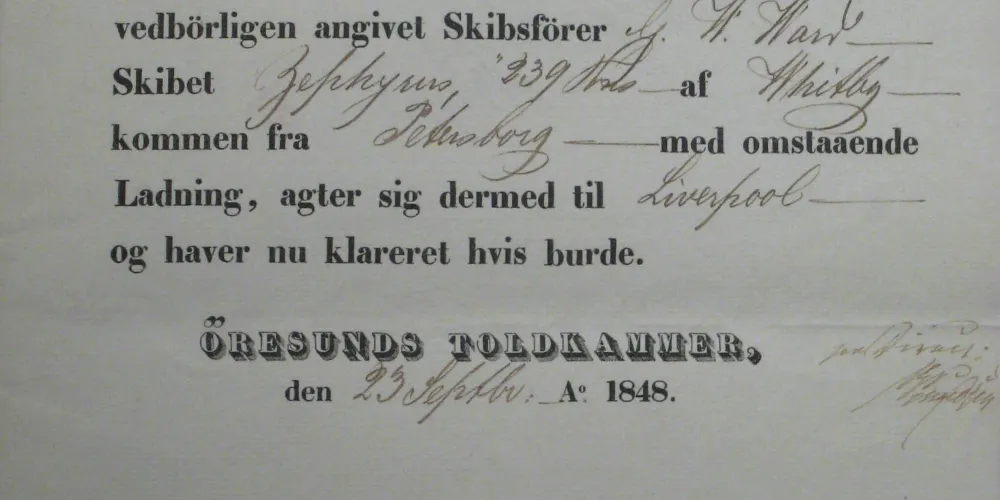 vedbörligen angivet Skibsförer G. W. Ward
Skibet Zephyrus, 239 Tons af Whitby
kommen fra Petersborg med omstaaende
Ladning, agter sig dermed til Liverpool
og haver nu klareret hvis burde.
ÖRESUNDS TOLDKAMMER,
den 23 Septbr: Aº 1848.